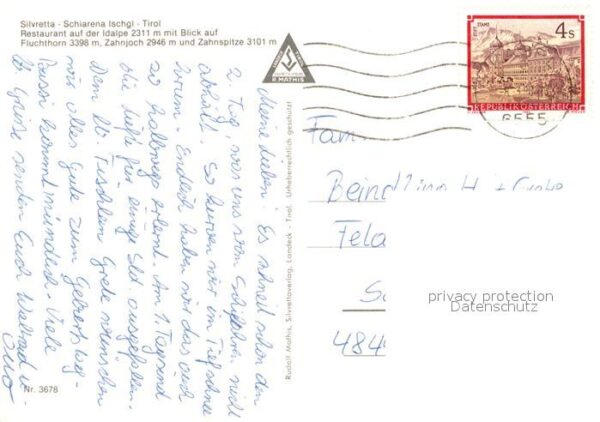 Silvretta - Schiarena Ischgl - Tirol
Restaurant auf der Idalpe 2311 m mit Blick auf
Fluchthorn 3398 m, Zahnjoch 2946 m und Zahnspitze 3101 m
R. MATHIS
STIFT STAMS
4s
REPUBLIK ÖSTERREICH
6555
Meine Lieben! Es schneit schon den
2. Tag, was uns vom Schifahren nicht
abhält. So kurven wir im Tiefschnee
herum - Endlich haben wir das auch
so halbwegs erlernt. Am 1. Tag sind
die Lifte für einige Std. ausgefallen.
Dem lb. Tischlein Grete wünschen
wir alles Gute zum Geburtstag -
Bussi kommt mündlich. Viele
lb Grüsse senden Euch Waltraud u.
Otto
Rudolf Mathis, Silvrettaverlag, Landeck - Tirol. Urheberrechtlich geschützt
Fam
Bein
Fela
S
484
privacy protection
Datenschutz
Nr. 3678